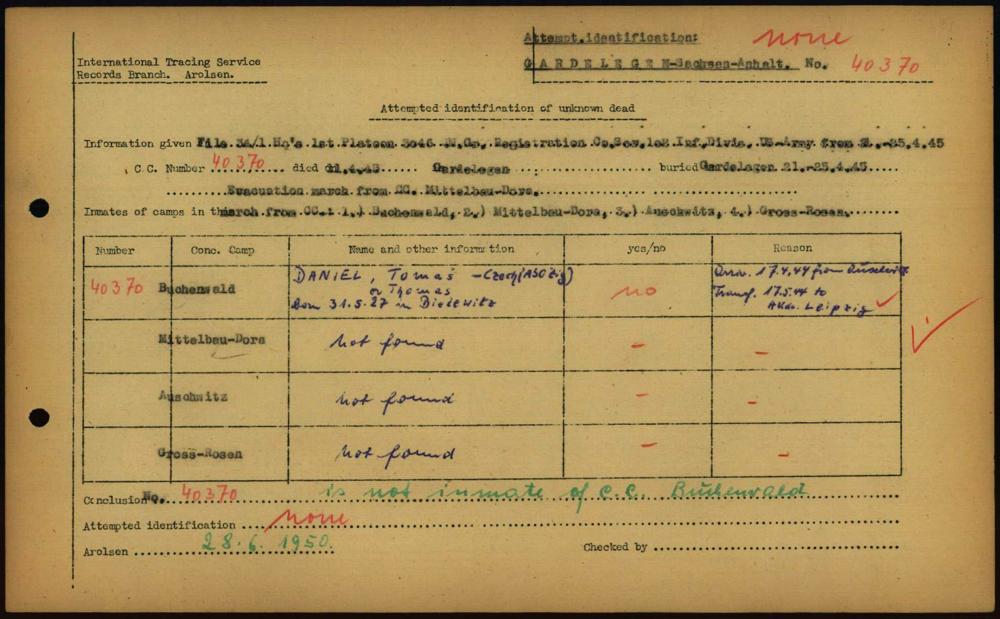 Attempt.identification: none
International Tracing Service
GARDELEGEN-Sachsen-Anhalt. No. 40370
Records Branch. Arolsen.
Attempted identification of unknown dead
Information given File.3A/1.Hq's.1st.Platoon.3046..Registration Co.Sev.102 Inf.Divis. US-Army from 21.-25.4.45
C.C. Number 40370 died 4.45 Gardelegen buried Gardelegen 21.-25.4.45
Evacuation march from CC. Mittelbau-Dora.
Inmates of camps in the march from CC.: 1.) Buchenwald, 2.) Mittelbau-Dora, 3.) Auschwitz, 4.) Gross-Rosen.
Number Conc. Camp Name and other information yes/no Reason
40370 Buchenwald DANIEL, Tomaš - Czech (ASO Zig) no Arriv. 17.4.44 from Auschwitz
or Thomas Transf. 17.5.44 to
born 31.5.27 in Leipzig
Mittelbau-Dora not found - -
Auschwitz not found - -
Gross-Rosen not found - -
Conclusion No. 40370 is not inmate of C.C. Buchenwald
Attempted identification none
Arolsen 28.6.1950. Checked by